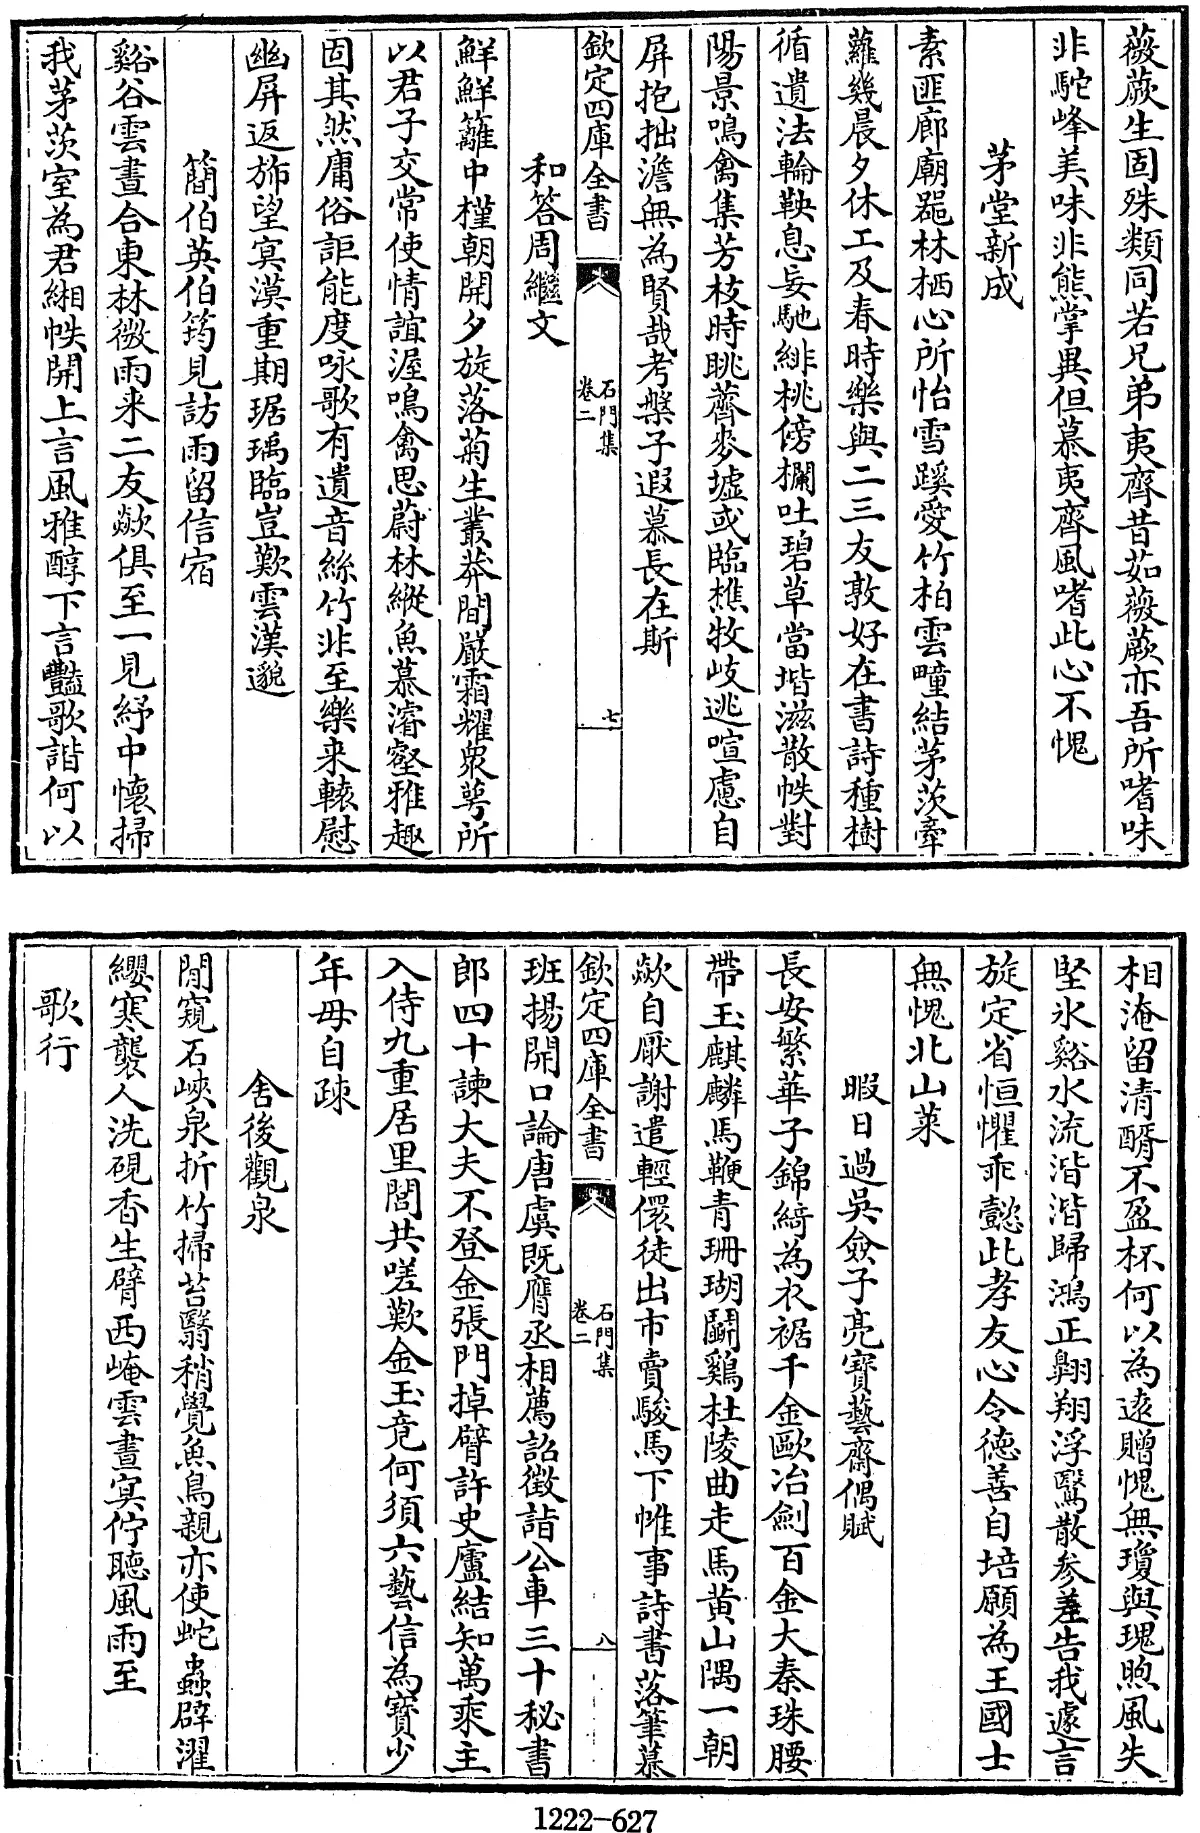 薇蕨生固殊類同若兄弟夷齊昔茹薇蕨亦吾所嗜味
非駝峰美味非熊掌異但慕夷齊風嗜此心不愧
茅堂新成
素匪廊廟器林栖心所怡雪蹊愛竹柏雲疃結茅茨牽
蘿幾晨夕休工及春時樂與二三友敦好在書詩種樹
循遺法輪鞅息妄馳緋桃傍欄吐碧草當堦滋散帙對
陽景鳴禽集芳枝時眺薺麥墟或臨樵牧岐逃喧慮自
屏抱拙澹無為賢哉考槃子遐慕長在斯
欽定四庫全書
石門集
卷二
七
和答周繼文
鮮鮮籬中槿朝開夕旋落菊生叢莽間嚴霜耀衆萼所
以君子交常使情誼渥鳴禽思蔚林縱魚慕濬壑雅趣
固其然庸俗詎能度咏歌有遺音絲竹非至樂来轅慰
幽屏返斾望寞漠重期琚瑀臨豈歎雲漢邈
簡伯英伯筠見訪雨留信宿
谿谷雲晝合東林微雨来二友歘俱至一見紓中懷掃
我茅茨室為君緗帙開上言風雅醇下言豔歌諧何以
相淹留清醑不盈杯何以為遠贈愧無瓊與瑰煦風失
堅氷谿水流湝湝歸鴻正翺翔浮鷖散參差告我遽言
旋定省恒懼乖懿此孝友心令德善自培願為王國士
無愧北山萊
暇日過吳僉子亮寶藝齋偶賦
長安繁華子錦綺為衣裾千金歐冶劍百金大秦珠腰
帶玉麒麟馬鞭青珊瑚鬭鷄杜陵曲走馬黄山隅一朝
歘自厭謝遣輕儇徒出市賣駿馬下帷事詩書落筆慕
欽定四庫全書
石門集
卷二
八
班揚開口論唐虞既膺丞相薦詔徵詣公車三十秘書
郎四十諫大夫不登金張門掉臂許史廬結知萬乘主
入侍九重居里閭共嗟歎金玉竟何須六藝信為寶少
年毋自疎
舍後觀泉
閒窺石峽泉折竹掃苔翳稍覺魚鳥親亦使蛇蟲辟濯
纓寒襲人洗硯香生臂西崦雲晝寞佇聽風雨至
歌行
1222-627